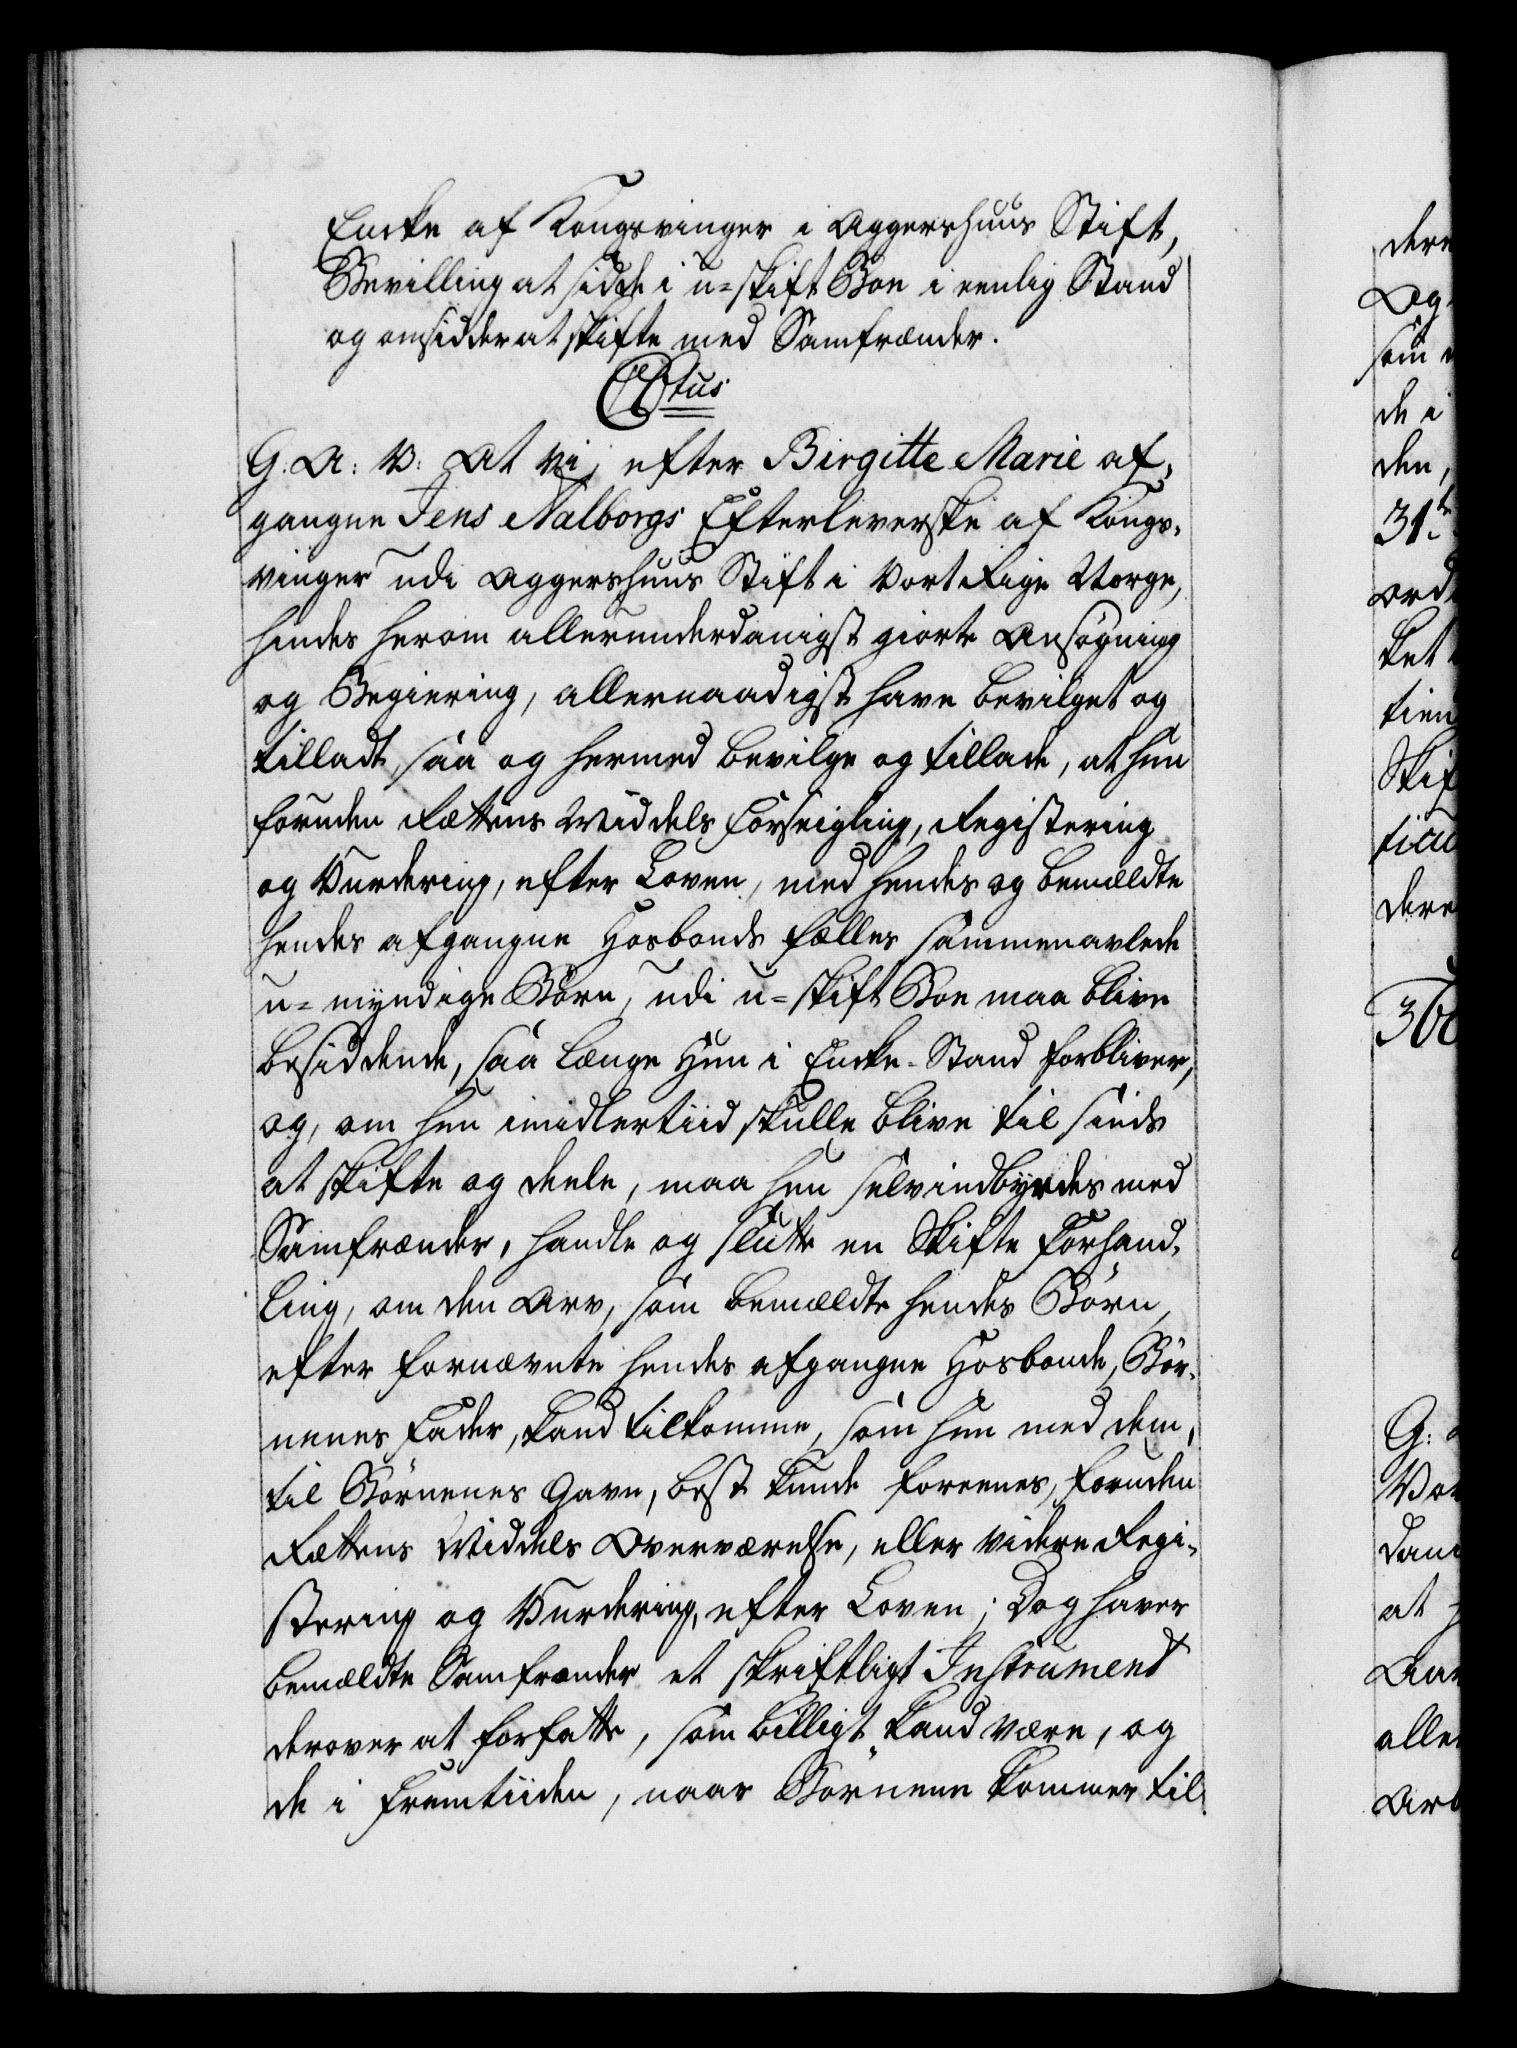 Encke af Kongsvinger i Aggershuus Stift,
Bevilling at sidde i u-skift Boe i eenlig Stand
og omsidder at skifte med Samfrænder.
C 7tus
G. A: V: At Vi, efter Birgitte Marie af-
gangne Jens Aalborgs Efterleverske af Kongs-
vinger udi Aggershuus Stift i Vort Rige Norge,
hendes herom allerunderdanigst giorte Ansøgning
og Begiering, allernaadigst have bevilget og
tilladt, saa og hermed bevilge og tillade, at hun
foruden Rettens Middels Forseigling, Registering
og Vurdering, efter Loven, med hendes og bemældte
hendes afgangne Hosbonds fælles sammenavlede
u-myndige Børn, udi u-skift Boe maa blive
besiddende, saa længe Hun i Encke-Stand forbliver,
og, om hun imidlertiid skulle blive til sinds
at skifte og deele, maa hun selv indbyrdes med
Samfrænder, handle og slutte en Skifte Forhand-
ling, om den Arv, som bemældte hendes Børn,
efter fornævnte hendes afgangne Hosbonde, Bør-
nenes Fader, kand tilkomme, som hun med dem,
til Børnenes Gavn, best kunde foreenes, foruden
Rettens Middels Overværelse, eller videre Regi-
stering og Vurdering, efter Loven; Dog haver
bemældte Samfrænder et skriftligt Instrument
derover at forfatte, som billigt kand være, og
de i Fremtiiden, naar Børnene kommer til
dere
Og
som
de i
den,
31te
Ord
ket
tien
Skif
dere
G:
Vor
dani
at
Aar
aller
Arb